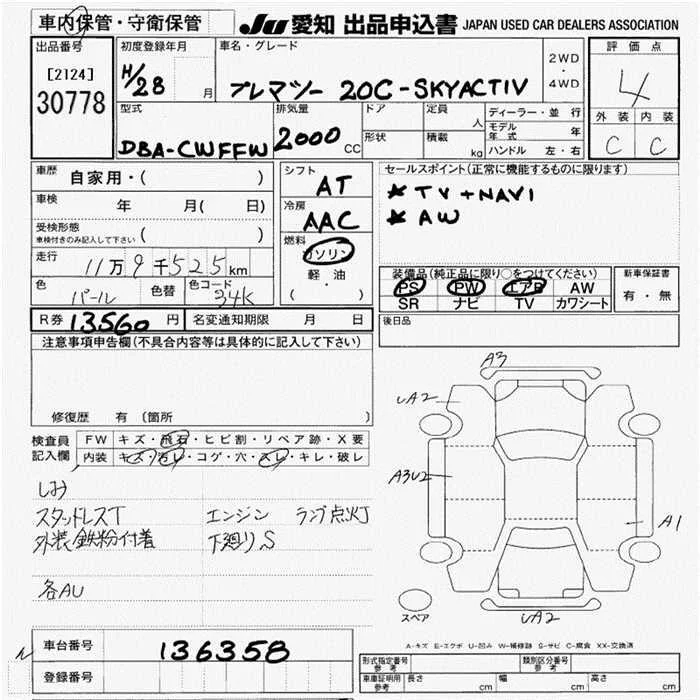 車内保管・守衛保管
JU 愛知 出品申込書 JAPAN USED CAR DEALERS ASSOCIATION
出品番号
[2124]
30778
初度登録年月
H/28 月
車名・グレード
プレマシー 20C-SKYACTIV
2WD
・
4WD
評価点
4
外装 内装
C C
型式
DBA-CWFFW
排気量
2000 CC
ドア
形状
定員 人
積載 kg
ディーラー・並行
モデル年式 年
ハンドル 左・右
車歴 自家用・( )
車検 年 月( 日)
受検形態
車検付きのみ記入して下さい ( )
走行 11万9千525km
色 パール 色替 色コード 34K
シフト AT
冷房 AAC
燃料
ガソリン
軽・油
( )
セールスポイント(正常に機能するものに限ります)
★TV+NAVI
★AW
装備品(純正品に限り○をつけてください)
PS PW エアB AW
SR ナビ TV カワシート
新車保証書
有・無
R券 13560 円 名変通知期限 月 日
後日品
注意事項申告欄(不具合内容等は具体的に記入して下さい)
修復歴 有 〔箇所 〕
検査員
記入欄
FW キズ・飛石・ヒビ割・リペア跡・X要
内装 キズ・汚レ・コゲ・穴・スレ・キレ・破レ
しみ
スタッドレスT エンジン ランプ点灯
外装鉄粉付着 下廻りS
各AU
A3
UA2
A3U2
A1
UA2
スペア
A-キズ E-エクボ U-凹み W-補修跡 S-サビ C-腐食 XX-交換済
車台番号 136358
登録番号
形式指定番号
参考
類別区分番号
参考
車庫証明用
参考
長さ cm 幅 cm 高さ cm